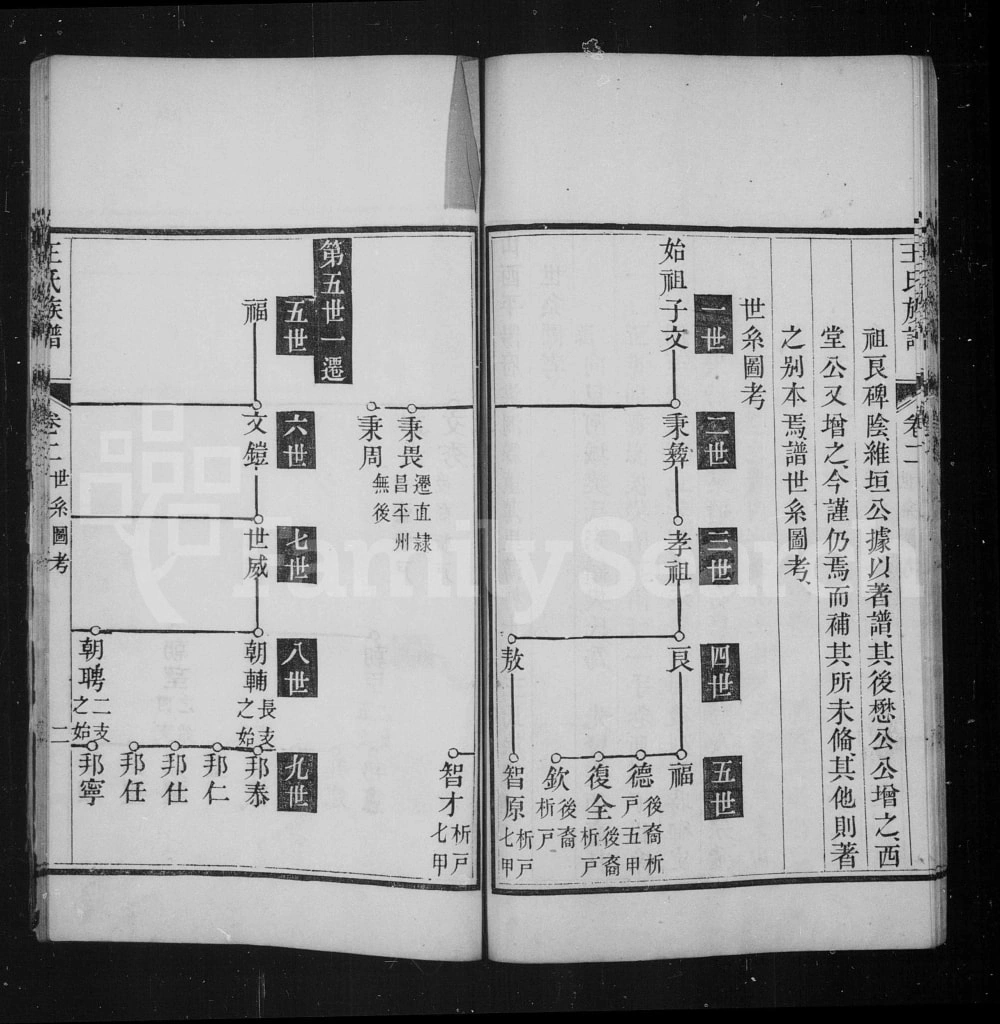 王氏族譜
卷二
祖艮碑陰維垣公據以著譜其後懋公公增之、西
堂公又增之、今謹仍焉而補其所未脩其他則著
之别本焉譜世系圖考、
世系圖考
一世
二世
三世
四世
五世
始祖子文
秉彝
孝祖
艮
福
德
後裔析
戸五甲
復全
後裔
析戸
欽
後裔
析戸
敖
智原
析戸
七甲
智才
析戸
七甲
秉畏
遷直隸
昌平州
秉周
無後
第五世一遷
五世
六世
七世
八世
九世
福
文鎧
世威
朝輔
長支
之始
邦泰
邦仁
邦仕
邦任
朝聘
二支
之始
邦寧
王氏族譜
卷二
世系圖考
二
FamilySearch